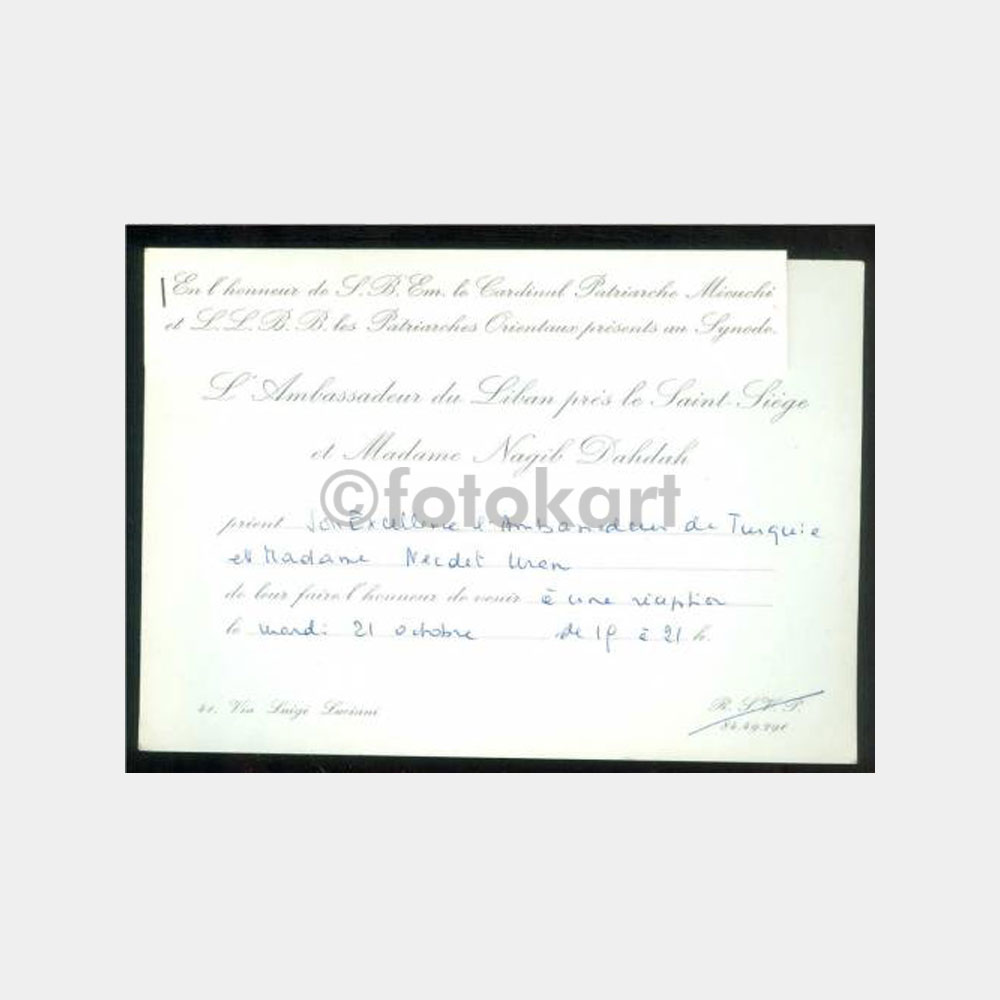 En l'honneur de S. B. Em. le Cardinal Patriarche Méouchi
et L. L. B. B. les Patriarches Orientaux présents au Synode.
L'Ambassadeur du Liban près le Saint-Siège
et Madame Nagib Dahdah
©fotokart
prient Son Excellence l'Ambassadeur de Turquie
et Madame Necdet Uran
de leur faire l'honneur de venir à une réception
le mardi 21 octobre de 19 à 21 h.
41, Via Luigi Luciani
R. S. V. P.